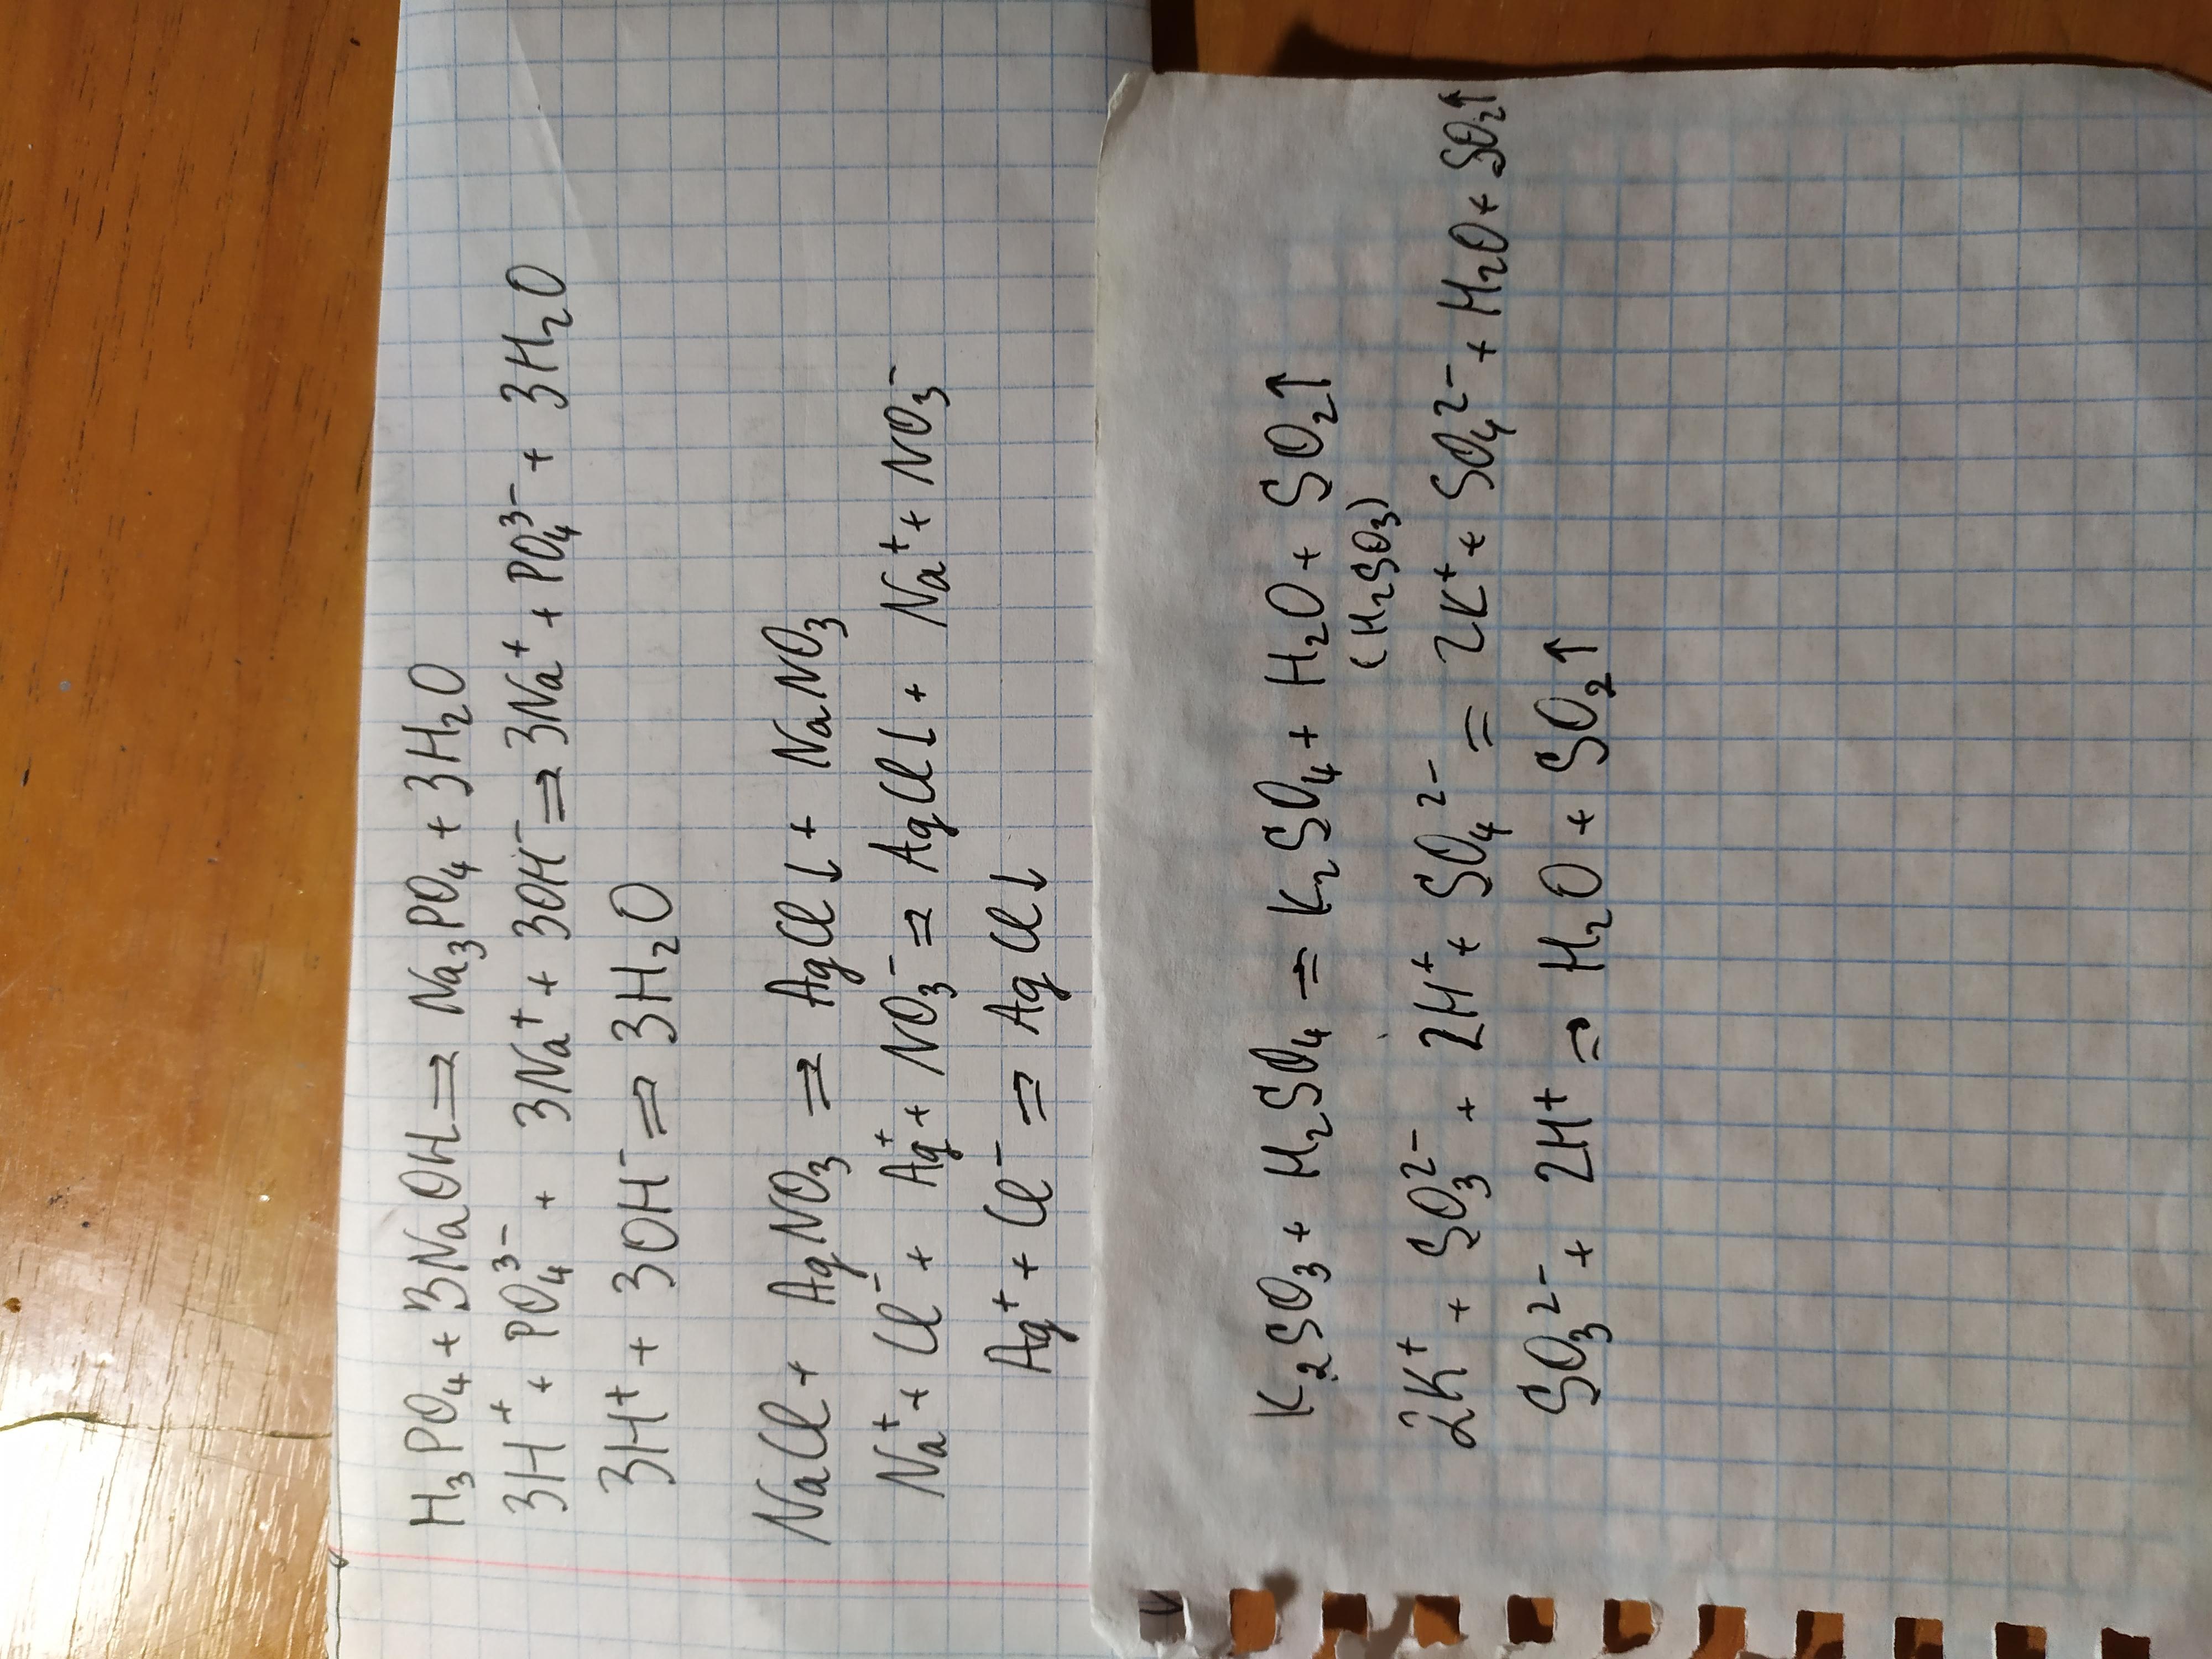 H₃PO₄ + 3NaOH = Na₃PO₄ + 3H₂O
3H⁺ + PO₄³⁻ + 3Na⁺ + 3OH⁻ = 3Na⁺ + PO₄³⁻ + 3H₂O
3H⁺ + 3OH⁻ = 3H₂O
NaCl + AgNO₃ = AgCl↓ + NaNO₃
Na⁺ + Cl⁻ + Ag⁺ + NO₃⁻ = AgCl↓ + Na⁺ + NO₃⁻
Ag⁺ + Cl⁻ = AgCl↓
K₂SO₃ + H₂SO₄ = K₂SO₄ + H₂O + SO₂↑
(H₂SO₃)
2K⁺ + SO₃²⁻ + 2H⁺ + SO₄²⁻ = 2K⁺ + SO₄²⁻ + H₂O + SO₂↑
SO₃²⁻ + 2H⁺ = H₂O + SO₂↑